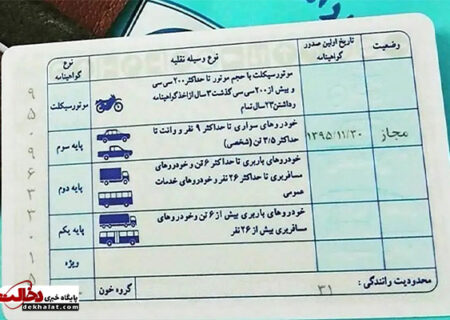 وضعیت
تاریخ اولین صدور گواهینامه
نوع وسیله نقلیه
نوع گواهینامه
موتورسیکلت با حجم موتور تا حداکثر ۲۰۰ سی سی
و بیش از ۲۰۰ سی سی گذشت ۳ سال از اخذ گواهینامه
و داشتن ۲۳ سال تمام
موتورسیکلت
مجاز
۱۳۹۵/۱۱/۳۰
خودروهای سواری تا حداکثر ۹ نفر و وانت تا
حداکثر ۳/۵ تن (شخصی)
پایه سوم
خودروهای باربری تا حداکثر ۶ تن و خودروهای
مسافربری تا حداکثر ۲۶ نفر و خودروهای خدمات
عمومی
پایه دوم
خودروهای باربری بیش از ۶ تن و خودروهای
مسافربری بیش از ۲۶ نفر
پایه یکم
ویژه
محدودیت رانندگی : ۳۱
گروه خون
پایگاه خبری دخالت
dekhalat.com